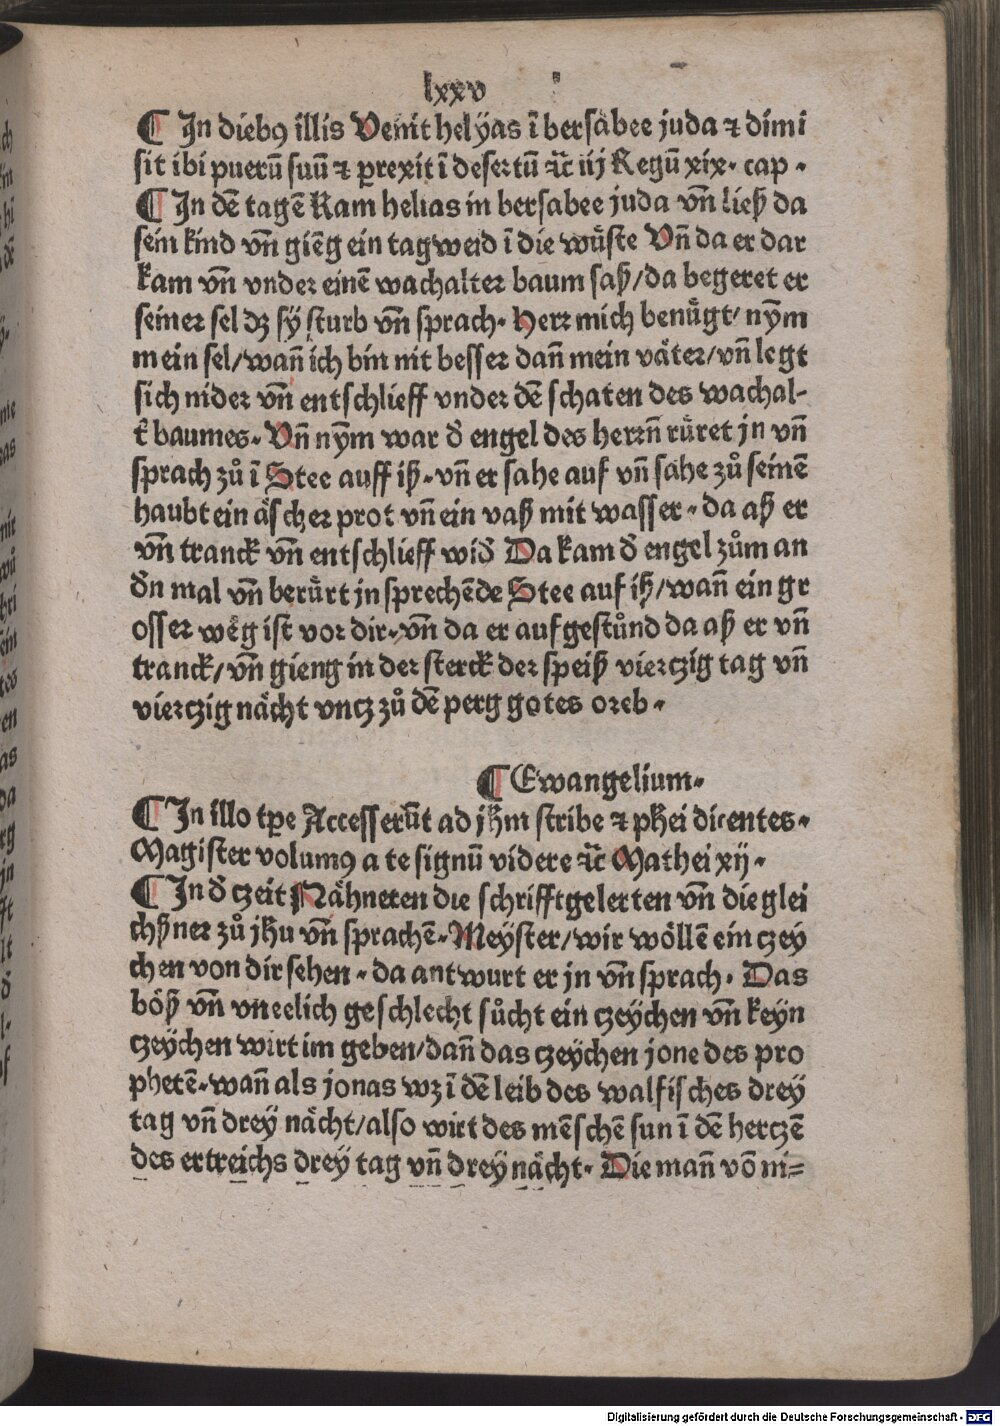 lxxv
¶ In diebꝰ illis Venit helÿas ī bersabee juda ⁊ dimi
sit ibi puerū suū ⁊ ꝑrexit ī desertū ⁊c̄ iij Regū xix. cap.
¶ In dē tagē Kam helias in bersabee juda vn̄ ließ da
sein kind vn̄ giēg ein tagweid ī die wuͤste Vn̄ da er dar
kam vn̄ vnder einē wachalter baum saß/da begeret er
seiner sel dz sÿ sturb vn̄ sprach. Herr mich benuͤgt/ nÿm
mein sel/wan̄ ich bin nit besser dan̄ mein vaͤter/vn̄ legt
sich nider vn̄ entschlieff vnder dē schaten des wachal-
t̄ baumes. Vn̄ nÿm war d̄ engel des herrn̄ ruͤret jn vn̄
sprach zuͦ ī Stee auff iß. vn̄ er sahe auf vn̄ sahe zuͦ seinē
haubt ein aͤscher prot vn̄ ein vaß mit wasser. da aß er
vn̄ tranck vn̄ entschlieff wid̄ Da kam d̄ engel zuͦm an
d̄n mal vn̄ beruͤrt jn sprechēde Stee auf iß/wan̄ ein gr
osser weg ist vor dir. vn̄ da er aufgestuͦnd da aß er vn̄
tranck/vn̄ gieng in der sterck der speiß vierczig tag vn̄
vierczig naͤcht vncz zuͦ dē perg gotes oreb.
¶ Ewangelium.
¶ In illo tꝑe Accesserūt ad jhm̄ stribe ⁊ ph̄ei dicentes.
Magister volumꝰ a te signū videre ⁊c̄ Mathei xij.
¶ In d̄ czeit Naͤhneten die schrifftgelerten vn̄ die glei
chßner zuͦ jhu̅ vn̄ sprachē. Meÿster/wir woͤllē ein czey
chen von dir sehen. da antwurt er jn vn̄ sprach. Das
boͤß vn̄ vneelich geschlecht suͦcht ein czeÿchen vn̄ keyn
czeÿchen wirt im geben/dan̄ das czeÿchen jone des pro
phetē. wan̄ als jonas wz ī dē leib des walfisches dreÿ
tag vn̄ dreÿ naͤcht/also wirt des mēschē sun ī dē herczē
des ertreichs dreÿ tag vn̄ dreÿ naͤcht. Die man̄ vō ni=
Digitalisierung gefördert durch die Deutsche Forschungsgemeinschaft - DFG